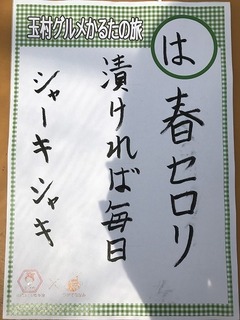 玉村グルメかるたの旅
は
春セロリ
漬ければ毎日
シャーキシャキ
×